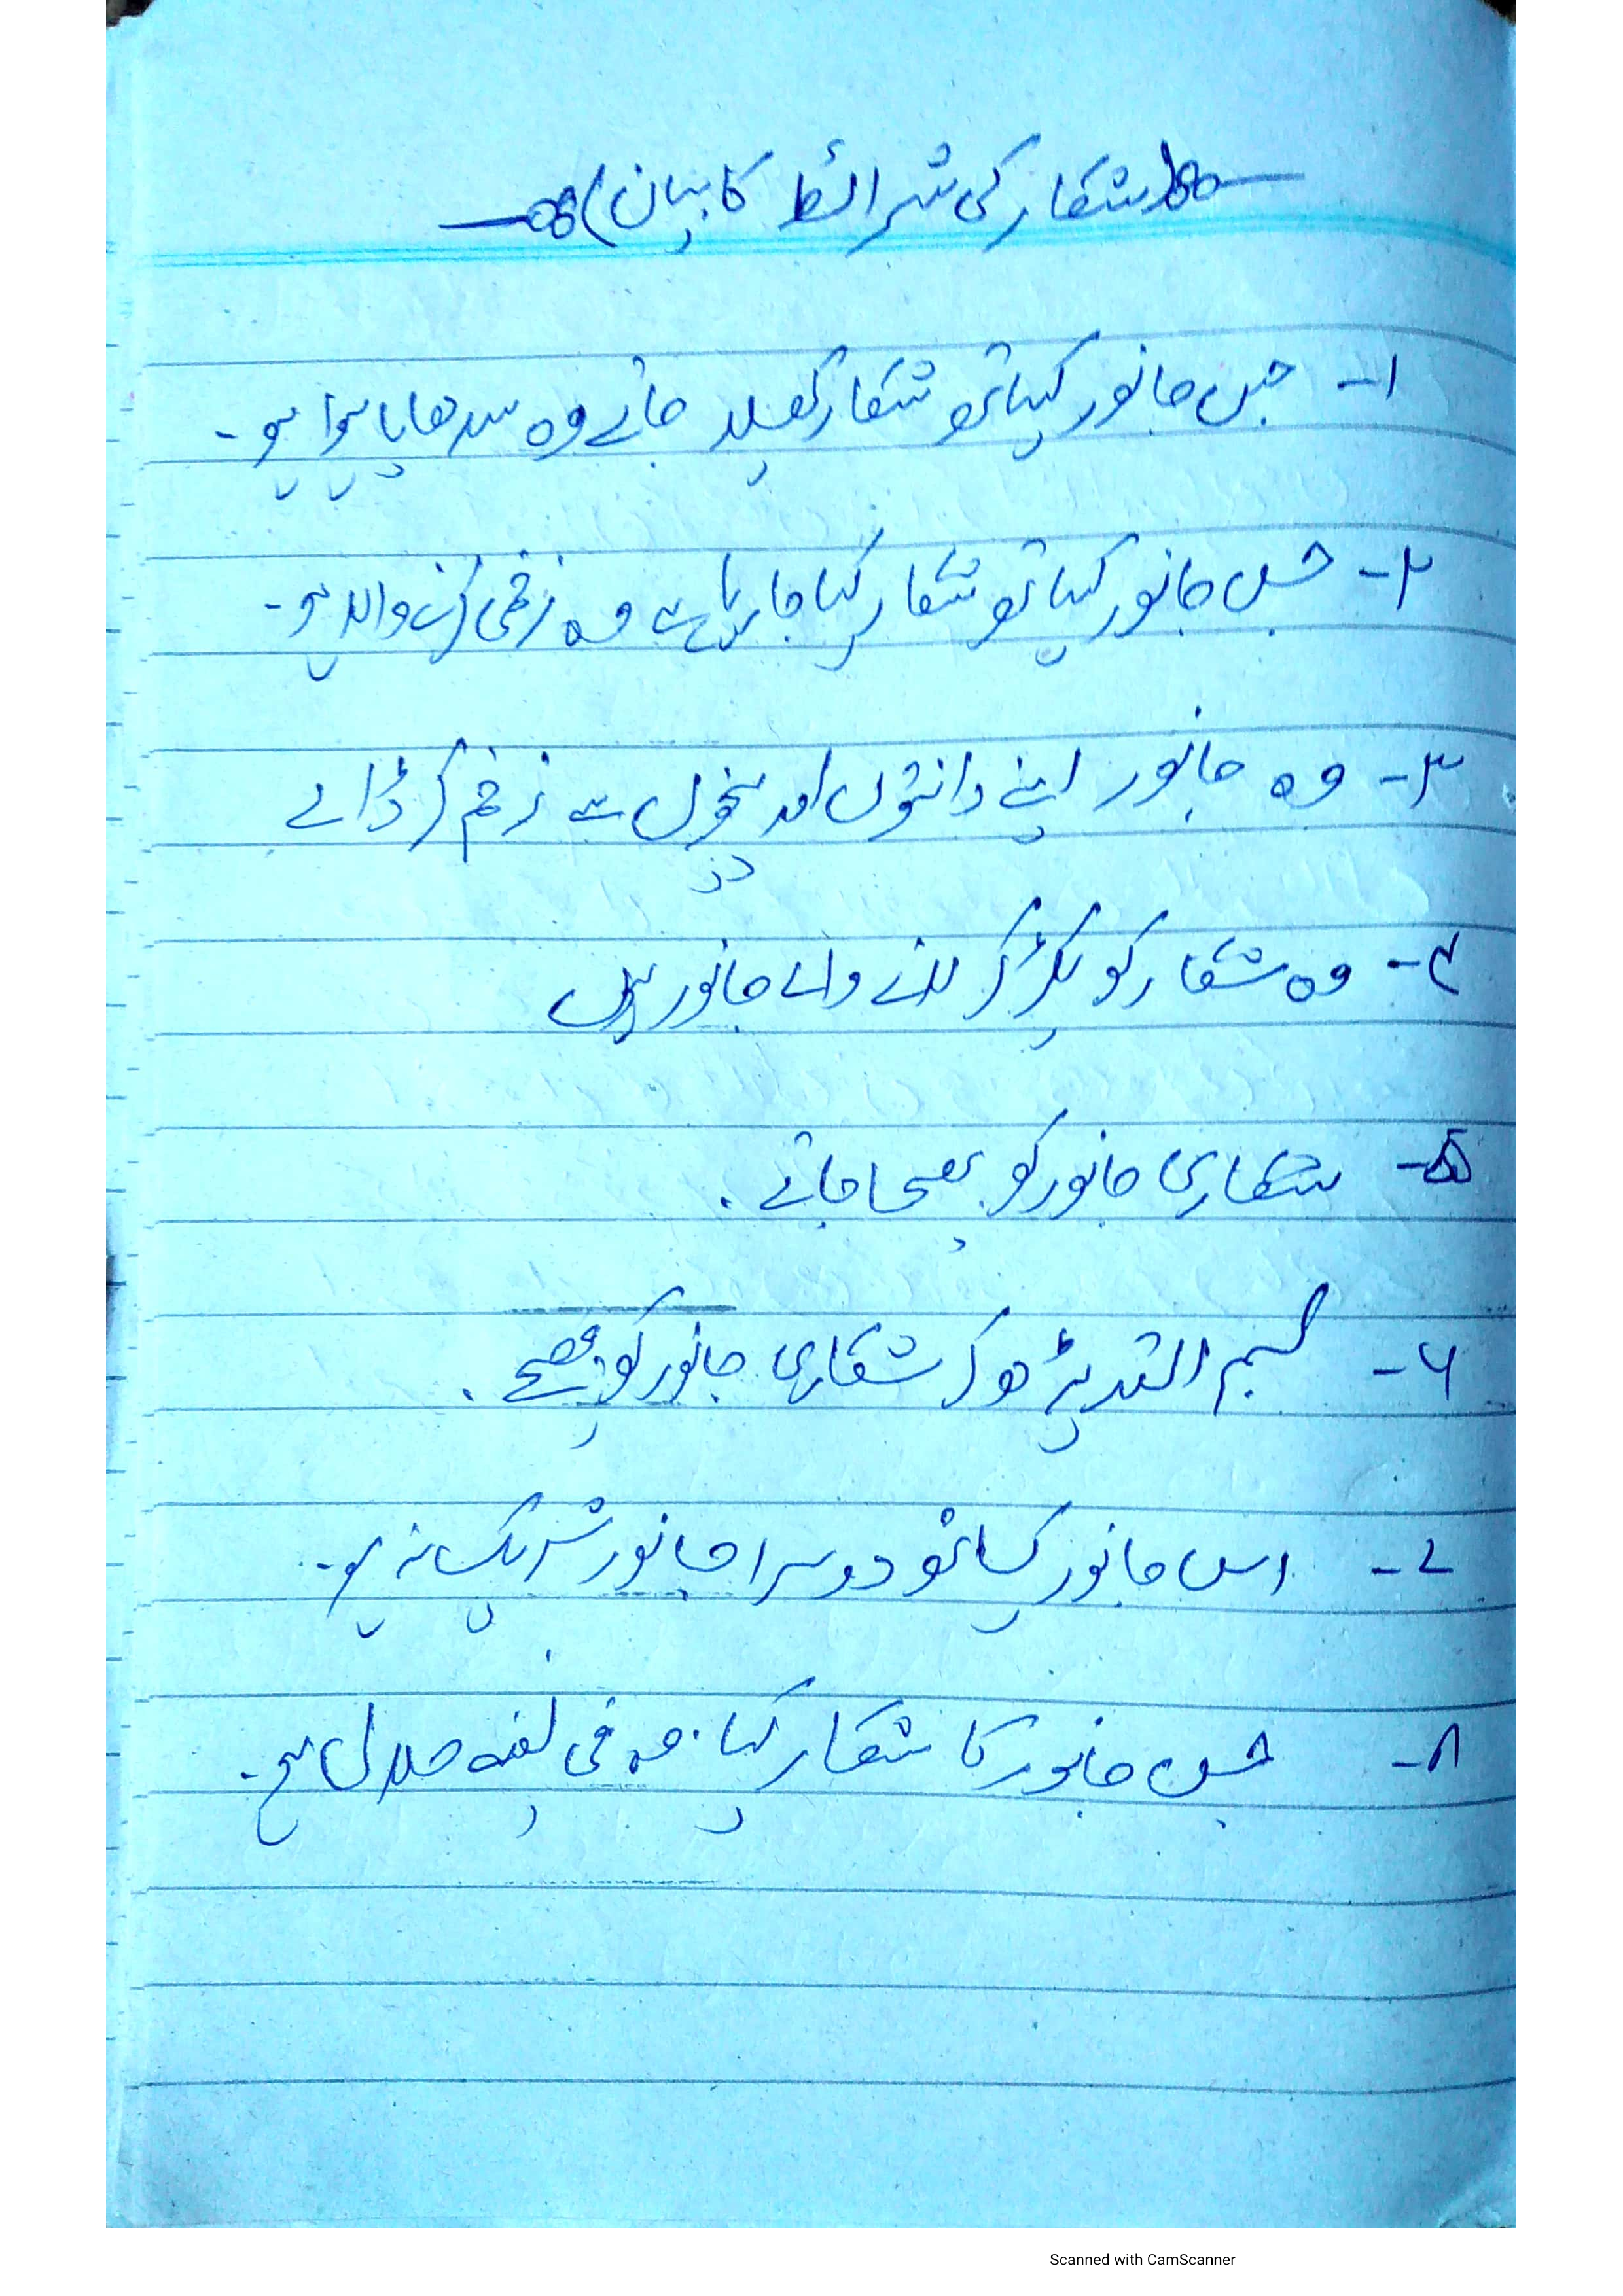 (شکار کی شرائط کا بیان)
۱- جس جانور کیساتھ شکار کھیلا جائے وہ سدھایا ہوا ہو۔
۲- جس جانور کیساتھ شکار کیا جا رہا ہے وہ زخمی کرنے والا ہو۔
۳- وہ جانور اپنے دانتوں اور پنجوں سے زخم کر ڈالے
۴- وہ شکار کو پکڑ کر لانے والے جانور ہوں
۵- شکاری جانور کو بھیجا جائے۔
۶- بسم اللہ پڑھ کر شکاری جانور کو بھیجے۔
۷- اس جانور کیساتھ دوسرا جانور شریک نہ ہو۔
۸- جس جانور کا شکار کیا وہ فی نفسہ حلال ہو۔
Scanned with CamScanner